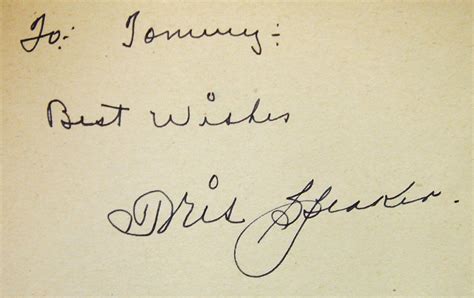 To: Tommy:
Best Wishes
Tris Speaker.